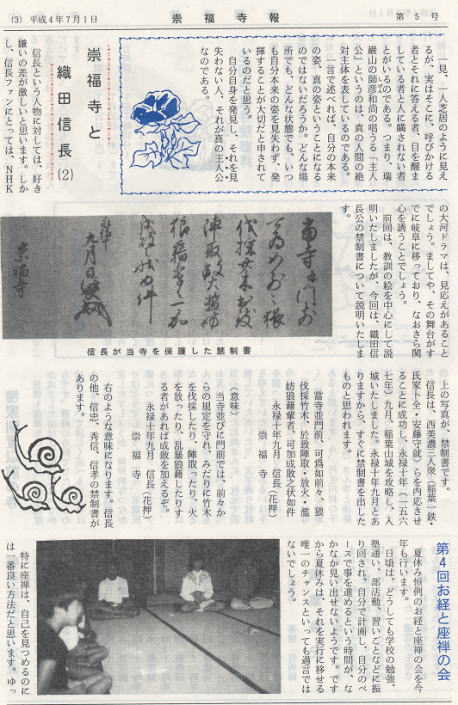 (3) 平成4年7月1日
崇福寺報
第5号
一見、一人芝居のように見え
るが、実はそこに、呼びかける
者とそれに答える者、目を醒ま
している者と人に瞞されない者
とがいるのである。つまり、瑞
巌山の師彦和尚の唱うる「主人
公」というのは、真の人間の絶
対主体を表しているのである。
一言で述べれば、自分の本来
の姿、真の姿ということになる
のではないだろうか。どんな場
所でも、どんな状態でも、いつ
も自分本来の姿を見失わず、発
揮することが大切だと申されて
いるのだと思う。
自分自身を発見し、それを見
失わない人、それが真の主人公
なのである。
崇福寺と
織田信長(2)
信長という人物に対しては、好き
嫌いの差が激しいと思います。しか
し、信長ファンにとっては、NHK
の大河ドラマは、見応えがあること
でしょう。ましてや、その舞台がす
でに岐阜に移っており、なおさら関
心を誘うことでしょう。
前回は、教訓の絵を中心にして説
明いたしましたが、今回は、織田信
長公の禁制書について説明いたしま
す。
崇福寺
信長が当寺を保護した禁制書
上の写真が、禁制書です。
信長は、西美濃三人衆(稲葉一鉄・
氏家卜全・安藤守就)らを内応させ
ることに成功し、永禄十年(一五六
七年)九月、稲葉山城を攻略し、入
城いたしました。永禄十年九月とあ
りますから、すぐに禁制書を出した
ものと思われます。
當寺並門前、可為如前々、猥
伐採竹木、於狼陣取・放火・濫
妨狼藉輩者、可加成敗之状如件
永禄十年九月 信長(花押)
崇福寺
(意味)
当寺並びに門前では、前々か
らの規定を守れ、みだりに竹木
を伐採したり、陣取ったり、火
を放ったり、乱暴狼藉したりす
る者があれば成敗を加えるぞ。
永禄十年九月 信長(花押)
崇福寺
右のような意味になります。信長
の他、信忠、秀信、信孝の禁制書が
あります。
第4回お経と座禅の会
夏休み恒例のお経と座禅の会を今
年も行います。
日頃は、どうしても学校の勉強、
塾通い、部活動、習いごとなどに振
り回され、自分で計画し、自分のペ
ースで事を進めるという時間が、な
かなか見い出せないようです。です
から夏休みは、それを実行に移せる
唯一のチャンスといっても過言では
ないでしょう。
特に座禅は、自己を見つめるのに
は一番良い方法だと思います。ゆっ